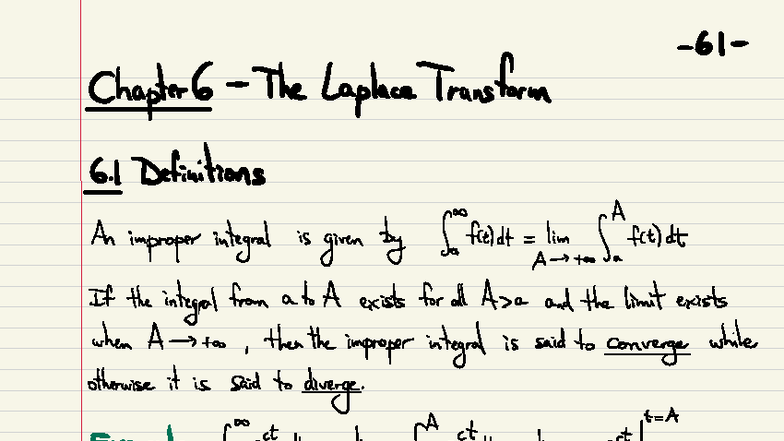 -61-
Chapter 6 - The Laplace Transform
6.1 Definitions
An improper integral is given by ∫_a^∞ f(t)dt = lim_{A→+∞} ∫_a^A f(t)dt
If the integral from a to A exists for all A>a and the limit exists
when A→+∞, then the improper integral is said to converge while
otherwise it is said to diverge.